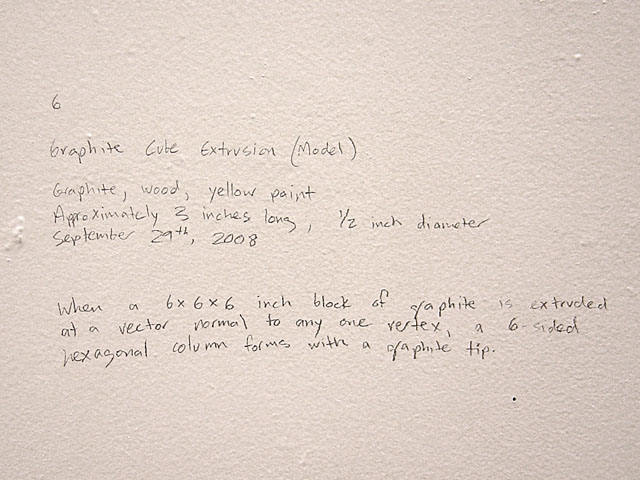 6
Graphite Cube Extrusion (Model)
Graphite, wood, yellow paint
Approximately 3 inches long, 1/2 inch diameter
September 29th, 2008
When a 6×6×6 inch block of graphite is extruded
at a vector normal to any one vertex, a 6-sided
hexagonal column forms with a graphite tip.